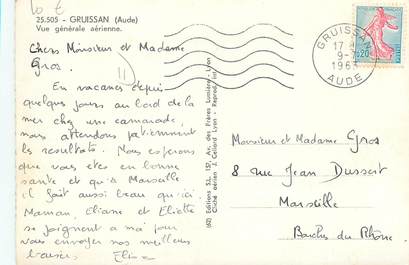 10 €
25.505 - GRUISSAN (Aude)
Vue générale aérienne.
Chers Monsieur et Madame
Gros.
En vacances depuis
quelques jours au bord de la
mer chez une camarade,
nous attendons patiemment
les resultats. Nous esperons
que vous etes en bonne
santé et qu'à Marseille
il fait aussi beau qu'ici
Maman, Eliane et Eliette
se joignent a moi pour
vous envoyer nos meilleurs
baisers.
(62) Editions S.L. 157, Av. des Frères Lumière - Lyon
Cliché aérien J. Cellard Lyon - Reprod. int.
GRUISSAN
17
9-
1963
AUDE
0,20
Monsieur et Madame Gros
8 rue Jean Dussert
Marseille
Bouches du Rhône